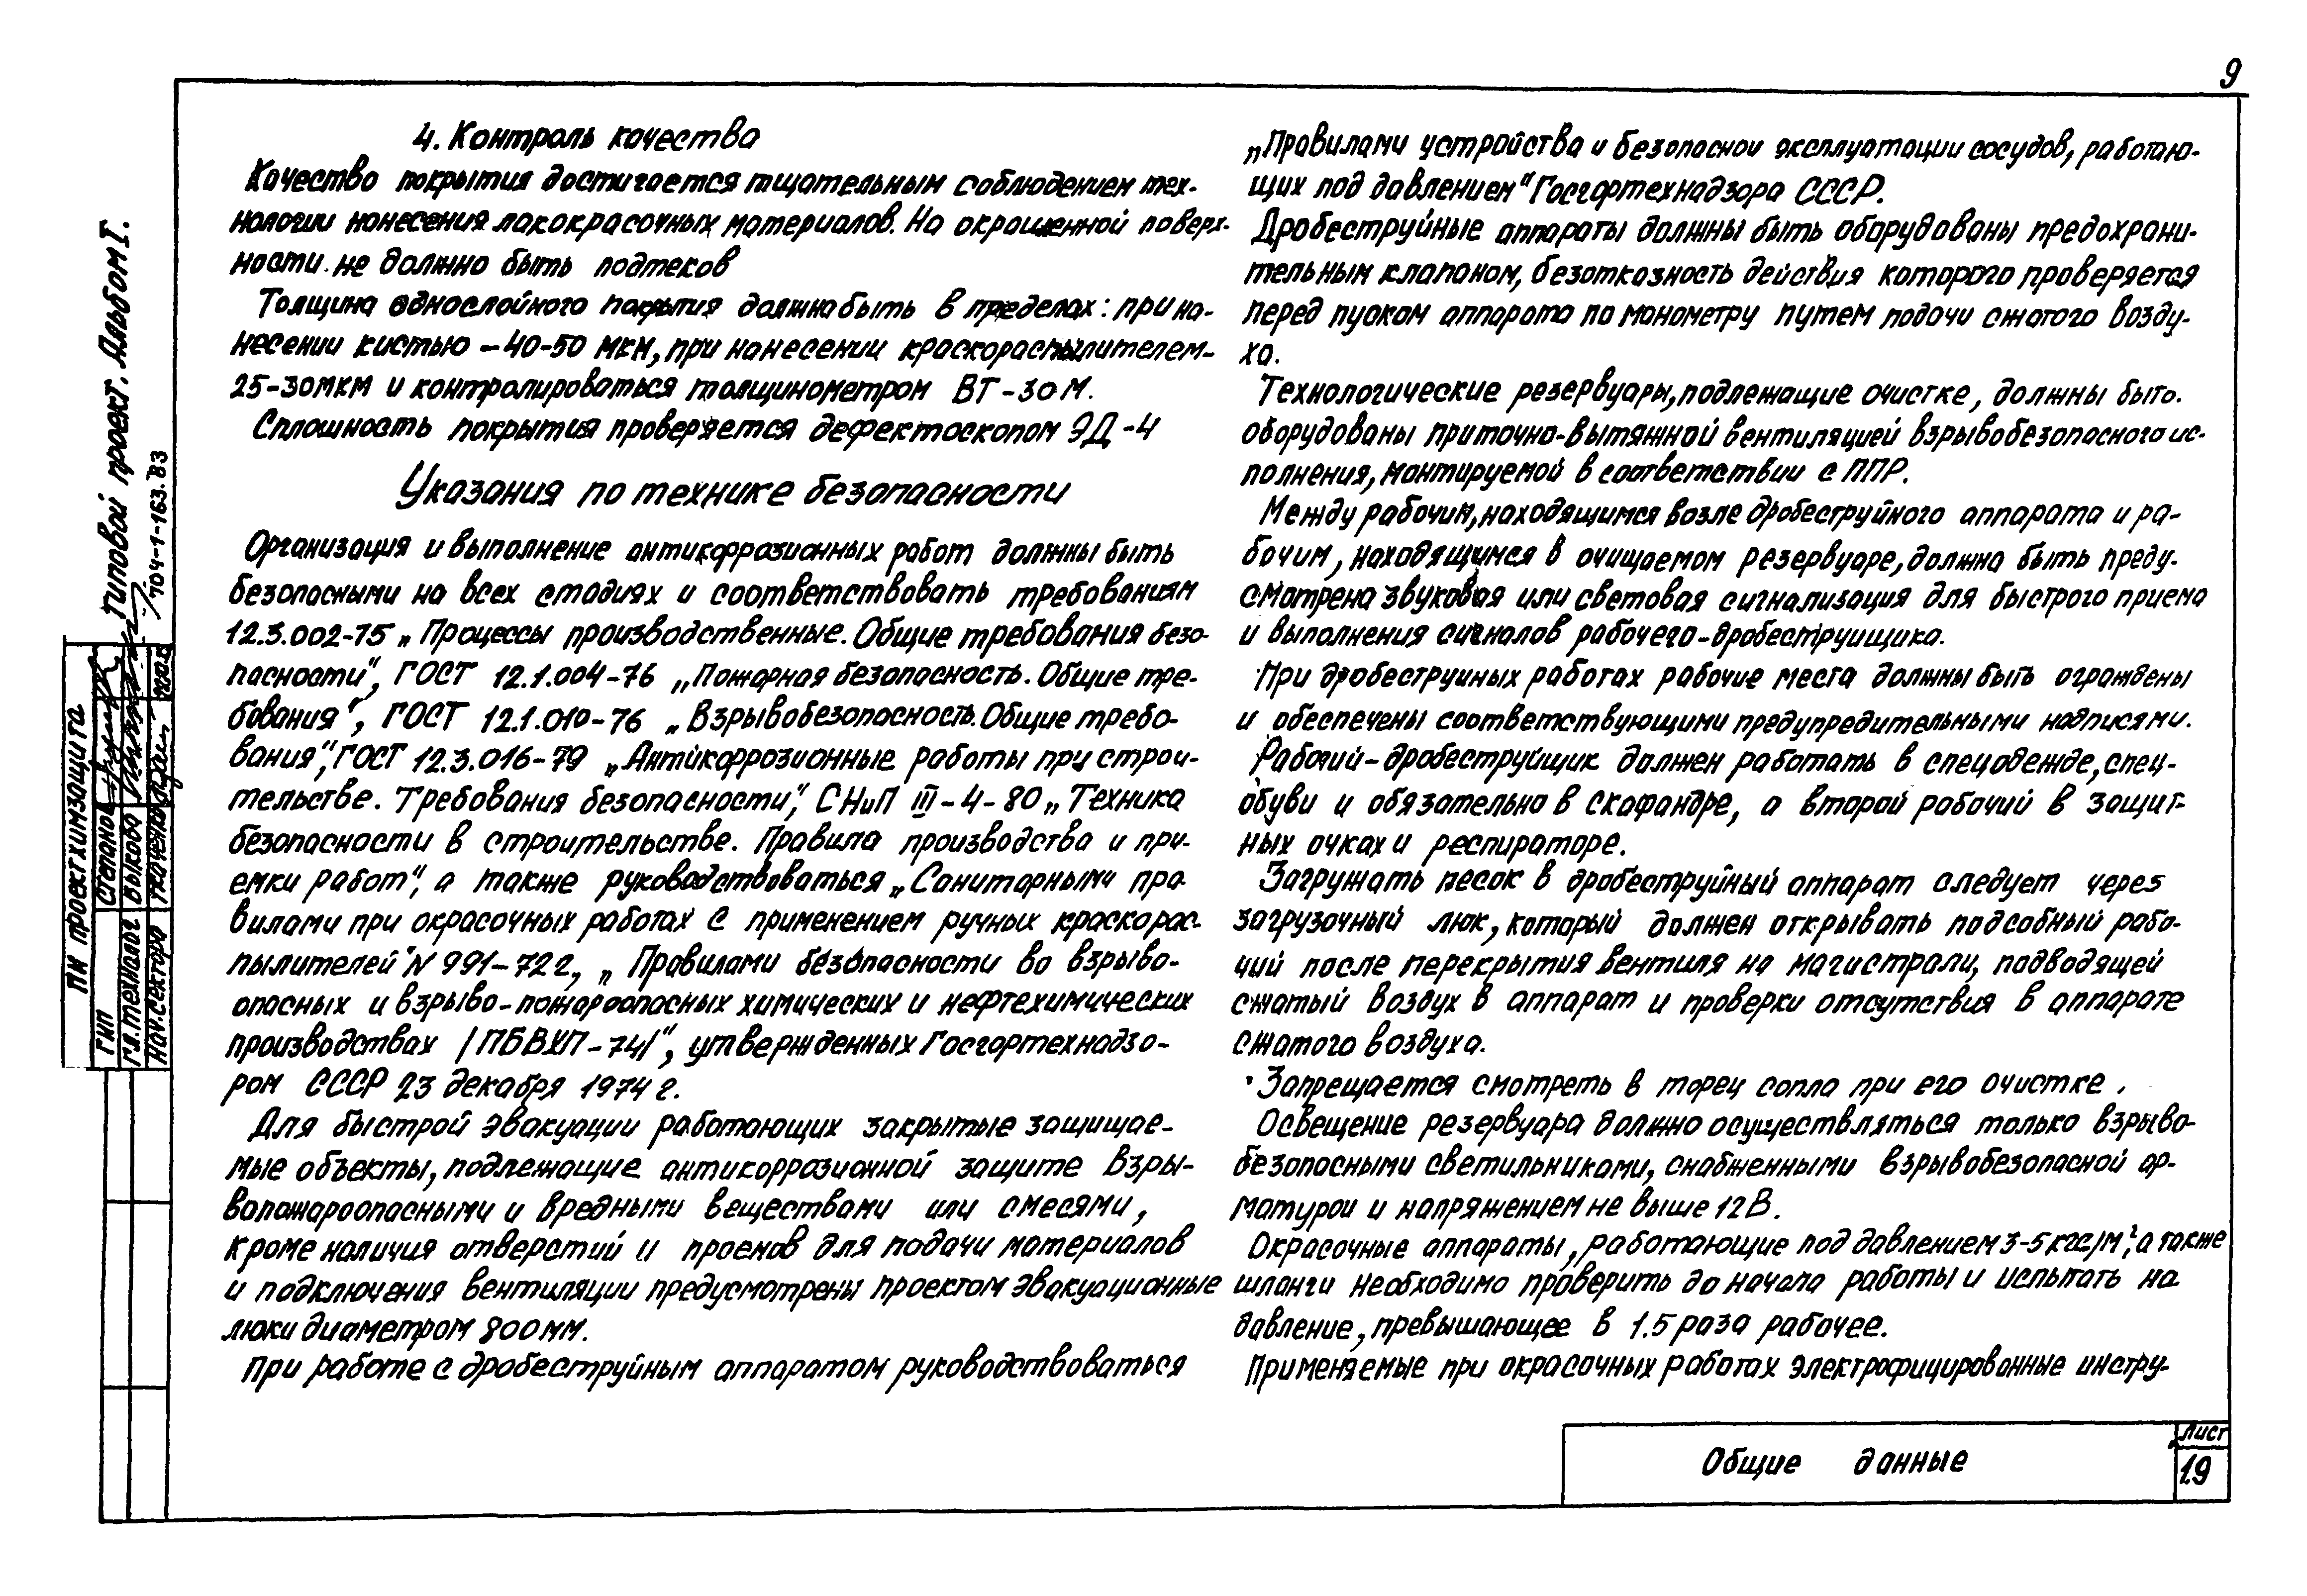 9
4. Контроль качества
Качество покрытия достигается тщательным соблюдением тех-
нологии нанесения лакокрасочных материалов. На окрашенной поверх-
ности не должно быть подтеков
Толщина однослойного покрытия должна быть в пределах: при на-
несении кистью – 40-50 мкм, при нанесении краскораспылителем-
25-30мкм и контролироваться толщинометром ВТ-30М.
Сплошность покрытия проверяется дефектоскопом ЭД-4
Указания по технике безопасности
Организация и выполнение антикоррозионных работ должны быть
безопасными на всех стадиях и соответствовать требованиям
12.3.002-75 „Процессы производственные. Общие требования безо-
пасности", ГОСТ 12.1.004-76 „Пожарная безопасность. Общие тре-
бования", ГОСТ 12.1.010-76 „Взрывобезопасность. Общие требо-
вания", ГОСТ 12.3.016-79 „Антикоррозионные работы при строи-
тельстве. Требования безопасности", СНиП III-4-80 „Техника
безопасности в строительстве. Правила производства и при-
емки работ", а также руководствоваться „Санитарными пра-
вилами при окрасочных работах с применением ручных краскорас-
пылителей" N 991-72г., „Правилами безопасности во взрыво-
опасных и взрыво-пожароопасных химических и нефтехимических
производствах /ПБВХП-74/", утвержденных Госгортехнадзо-
ром СССР 23 декабря 1974г.
Для быстрой эвакуации работающих закрытые защищае-
мые объекты, подлежащие антикоррозионной защите взры-
вопожароопасными и вредными веществами или смесями,
кроме наличия отверстий и проемов для подачи материалов
и подключения вентиляции предусмотрены проектом эвакуационные
люки диаметром 800мм.
При работе с дробеструйным аппаратом руководствоваться
„Правилами устройства и безопасной эксплуатации сосудов, работаю-
щих под давлением" Госгортехнадзора СССР.
Дробеструйные аппараты должны быть оборудованы предохрани-
тельным клапаном, безотказность действия которого проверяется
перед пуском аппарата по манометру путем подачи сжатого возду-
ха.
Технологические резервуары, подлежащие очистке, должны быть
оборудованы приточно-вытяжной вентиляцией взрывобезопасного ис-
полнения, монтируемой в соответствии с ППР.
Между рабочим, находящимся возле дробеструйного аппарата и ра-
бочим, находящимся в очищаемом резервуаре, должна быть преду-
смотрена звуковая или световая сигнализация для быстрого приема
и выполнения сигналов рабочего-дробеструйщика.
При дробеструйных работах рабочие места должны быть ограждены
и обеспечены соответствующими предупредительными надписями.
Рабочий-дробеструйщик должен работать в спецодежде, спец-
обуви и обязательно в скафандре, а второй рабочий в защит-
ных очках и респираторе.
Загружать песок в дробеструйный аппарат следует через
загрузочный люк, который должен открывать подсобный рабо-
чий после перекрытия вентиля на магистрали, подводящей
сжатый воздух в аппарат и проверки отсутствия в аппарате
сжатого воздуха.
Запрещается смотреть в торец сопла при его очистке.
Освещение резервуара должно осуществляться только взрыво-
безопасными светильниками, снабженными взрывобезопасной ар-
матурой и напряжением не выше 12В.
Окрасочные аппараты, работающие под давлением 3-5 кгс/м², а также
шланги необходимо проверить до начала работы и испытать на
давление, превышающее в 1.5 раза рабочее.
Применяемые при окрасочных работах электрофицированные инстру-
Общие данные
Лист
1.9
Типовой проект. Альбом I.
704-1-163.83
ПИ проектхимзащита
ГИП Степанов
Гл.технолог Быкова
Нач.сектора Ткаченко